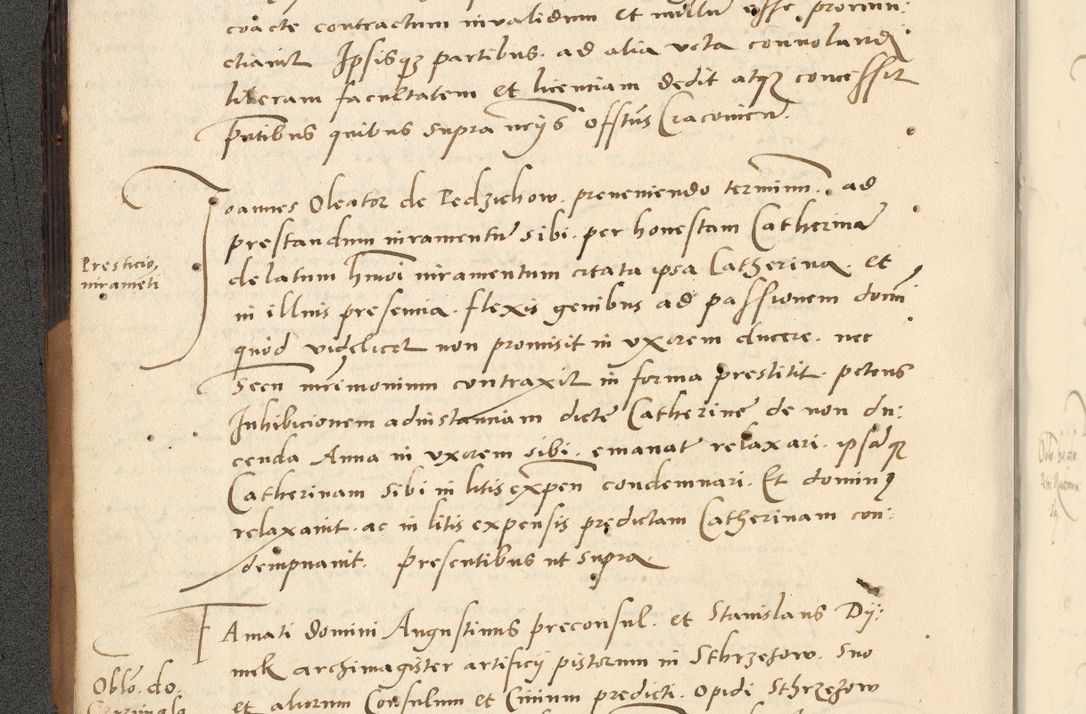 coacte contractum invalidum et nullum esse pronun:
ctiavit Ipsisq3 partibus. ad alia vota convolandi
liberam facultatem et licenciam dedit atq3 concessit
pntibus quibus supra nriis offstus Cracovien.
Joannes Oleator de Pedzichow. preveniendo terminum. ad
prestandum iuramentum sibi. per honestam Catherinam
delatum hmoi iuramentum citata ipsa Catherina et
in illius presencia. flexis genibus ad passionem domini
quod videlicet non promisit in uxorem ducere. nec
Secum mrimonium contraxit in forma prestitit. petens
Inhibicionem ad instanciam dicte Catherine de non du:
cenda Anna in uxorem sibi. emanatam relaxari. ipsamq3
Catherinam sibi in litis expen condemnari. Et dominus
relaxavit. ac in litis expensis predictam Catherinam con:
dempnavit. presentibus ut supra
Presticio,
iurameti
Famati domini Augustinus preconsul. et Stanislaus Dy:
mek archimagister artificij pistorum in Sthrzezow. suo
et aliorum Consulum et Civium predicti. Opidi Sthrzezow
Oblo. do.